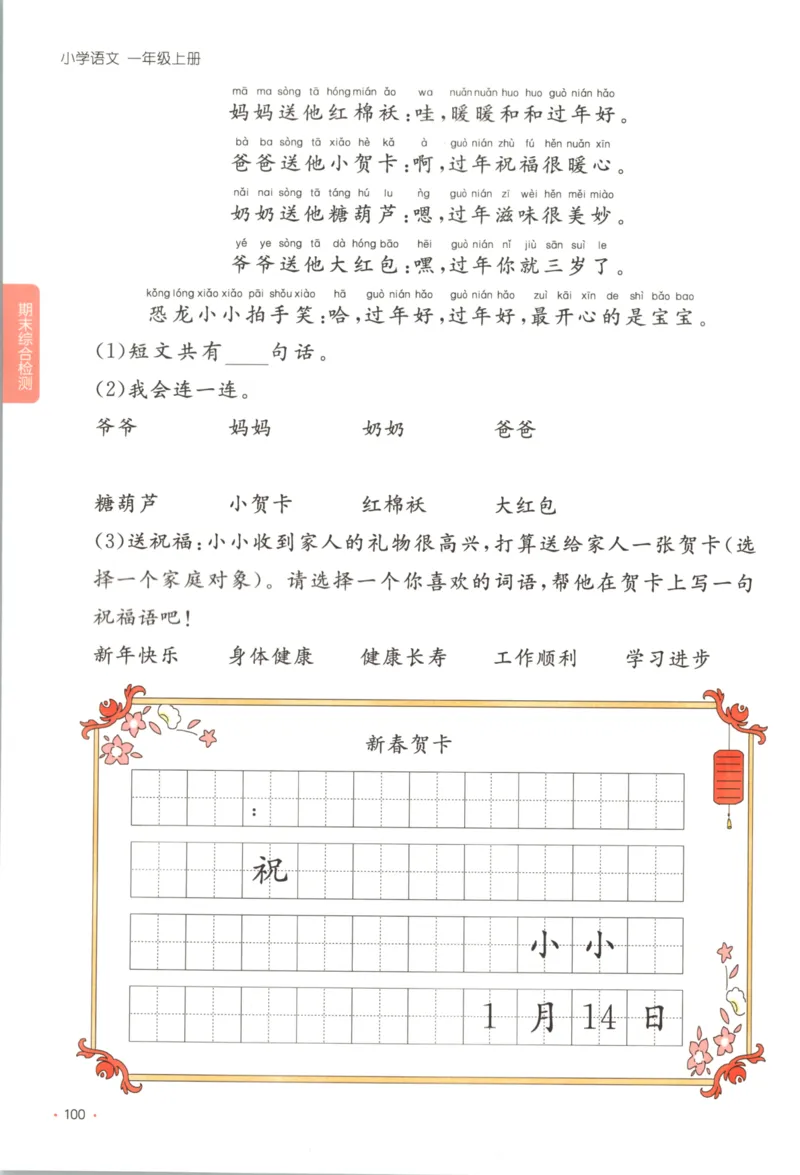 小学语文 一年级上册
mā ma sòng tā hóng mián ǎo wa nuǎn nuǎn huo huo guò nián hǎo
妈妈送他红棉袄:哇,暖暖和和过年好。
bà ba sòng tā xiǎo hè kǎ à guò nián zhù fú hěn nuǎn xīn
爸爸送他小贺卡:啊,过年祝福很暖心。
nǎi nai sòng tā táng hú lu ǹg guò nián zī wèi hěn měi miào
奶奶送他糖葫芦:嗯,过年滋味很美妙。
yé ye sòng tā dà hóng bāo hēi guò nián nǐ jiù sān suì le
爷爷送他大红包:嘿,过年你就三岁了。
kǒng lóng xiǎo xiǎo pāi shǒu xiào hā guò nián hǎo guò nián hǎo zuì kāi xīn de shì bǎo bao
恐龙小小拍手笑:哈,过年好,过年好,最开心的是宝宝。
期末综合检测
(1)短文共有____句话。
(2)我会连一连。
爷爷 妈妈 奶奶 爸爸
糖葫芦 小贺卡 红棉袄 大红包
(3)送祝福:小小收到家人的礼物很高兴,打算送给家人一张贺卡(选
择一个家庭对象)。请选择一个你喜欢的词语,帮他在贺卡上写一句
祝福语吧!
新年快乐 身体健康 健康长寿 工作顺利 学习进步
新春贺卡
:
祝
小小
1月14日
·100·